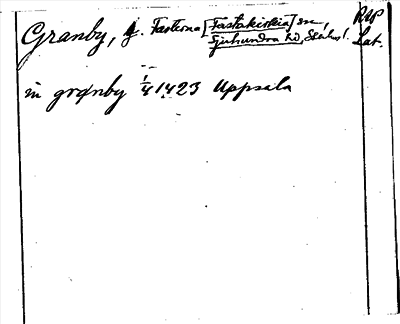 Granby, g. Fasterna [Fastakirkia] sn, RAP
Sjuhundra hd, Sthlms l. Lat.
in granby 1/4 1423 Uppsala